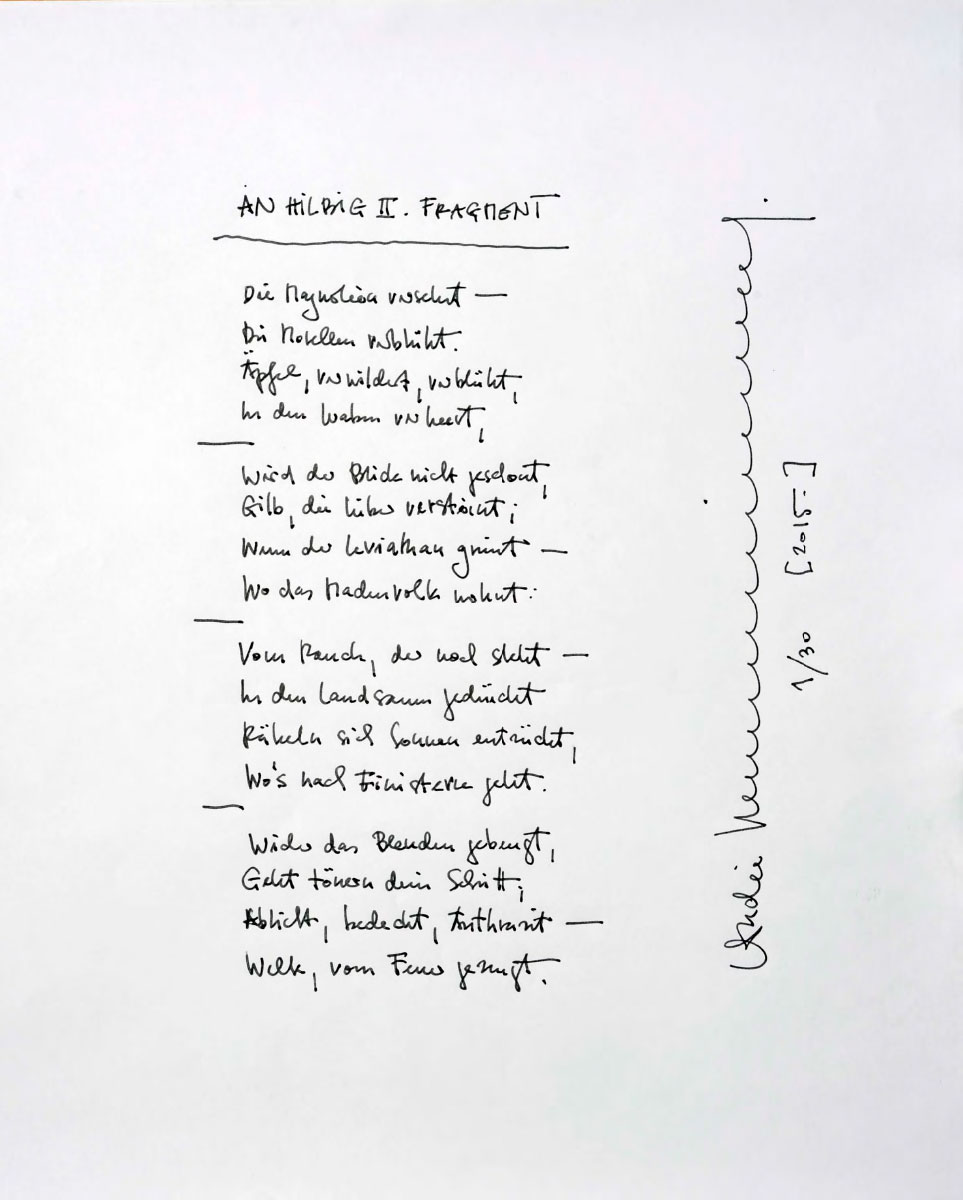 AN HILBIG II. FRAGMENT
Die Magnolien versehrt —
Die Morellen verblüht.
Äpfel, verwildert, verblüht,
In den Waben verheert,
Wird der Blick nicht geschont,
Gilb, die Lüfte verströmt;
Wenn der Leviathan grient —
Wo das Madenvolk wohnt:
Vom Rauch, der noch steht —
In den Landsaum gedrückt
Räkeln sich Sonnen entrückt,
Wo's nach Finisterre geht.
Wider das Blenden gebeugt,
Geht tönern dein Schritt;
Ablicht, bedeckt, Anthrazit —
Welk, vom Feuer gezeugt.
André
1/30 [2015.]